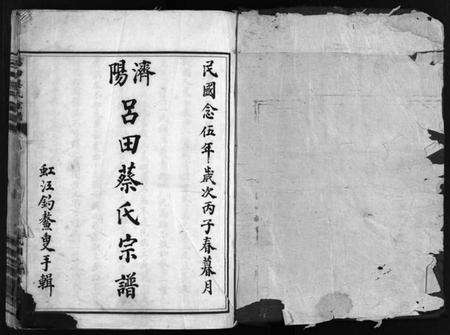 民國念伍年歲次丙子春暮月
濟陽
呂田蔡氏宗譜
虹江鈞鰲叟手輯